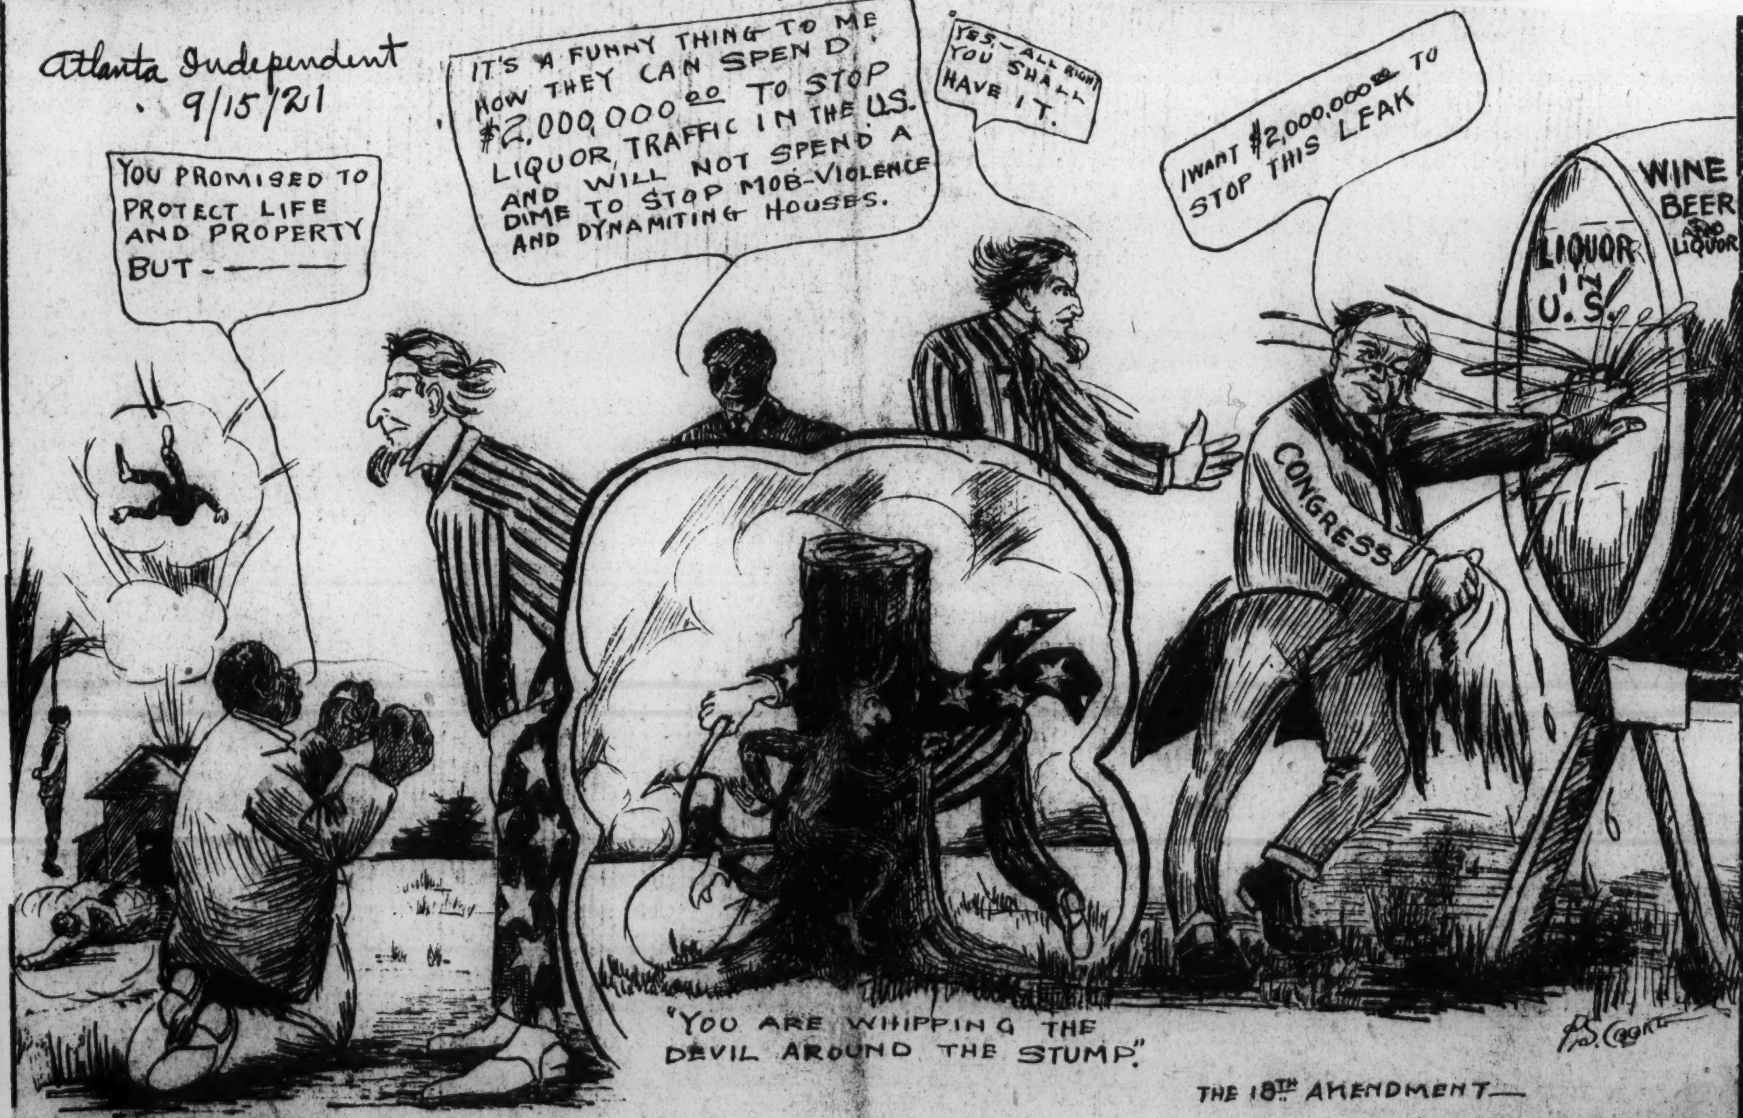 Atlanta Independent
9/15/21
YOU PROMISED TO
PROTECT LIFE
AND PROPERTY
BUT - — — —
IT'S A FUNNY THING TO ME
HOW THEY CAN SPEND
$2,000,000 00 TO STOP
LIQUOR TRAFFIC IN THE U.S.
AND WILL NOT SPEND A
DIME TO STOP MOB-VIOLENCE
AND DYNAMITING HOUSES.
YES, - ALL RIGHT
YOU SHALL
HAVE IT.
I WANT $2,000,000 00 TO
STOP THIS LEAK
WINE
BEER
AND
LIQUOR
LIQUOR
IN
U.S.
CONGRESS
"YOU ARE WHIPPING THE
DEVIL AROUND THE STUMP."
THE 18TH AMENDMENT —